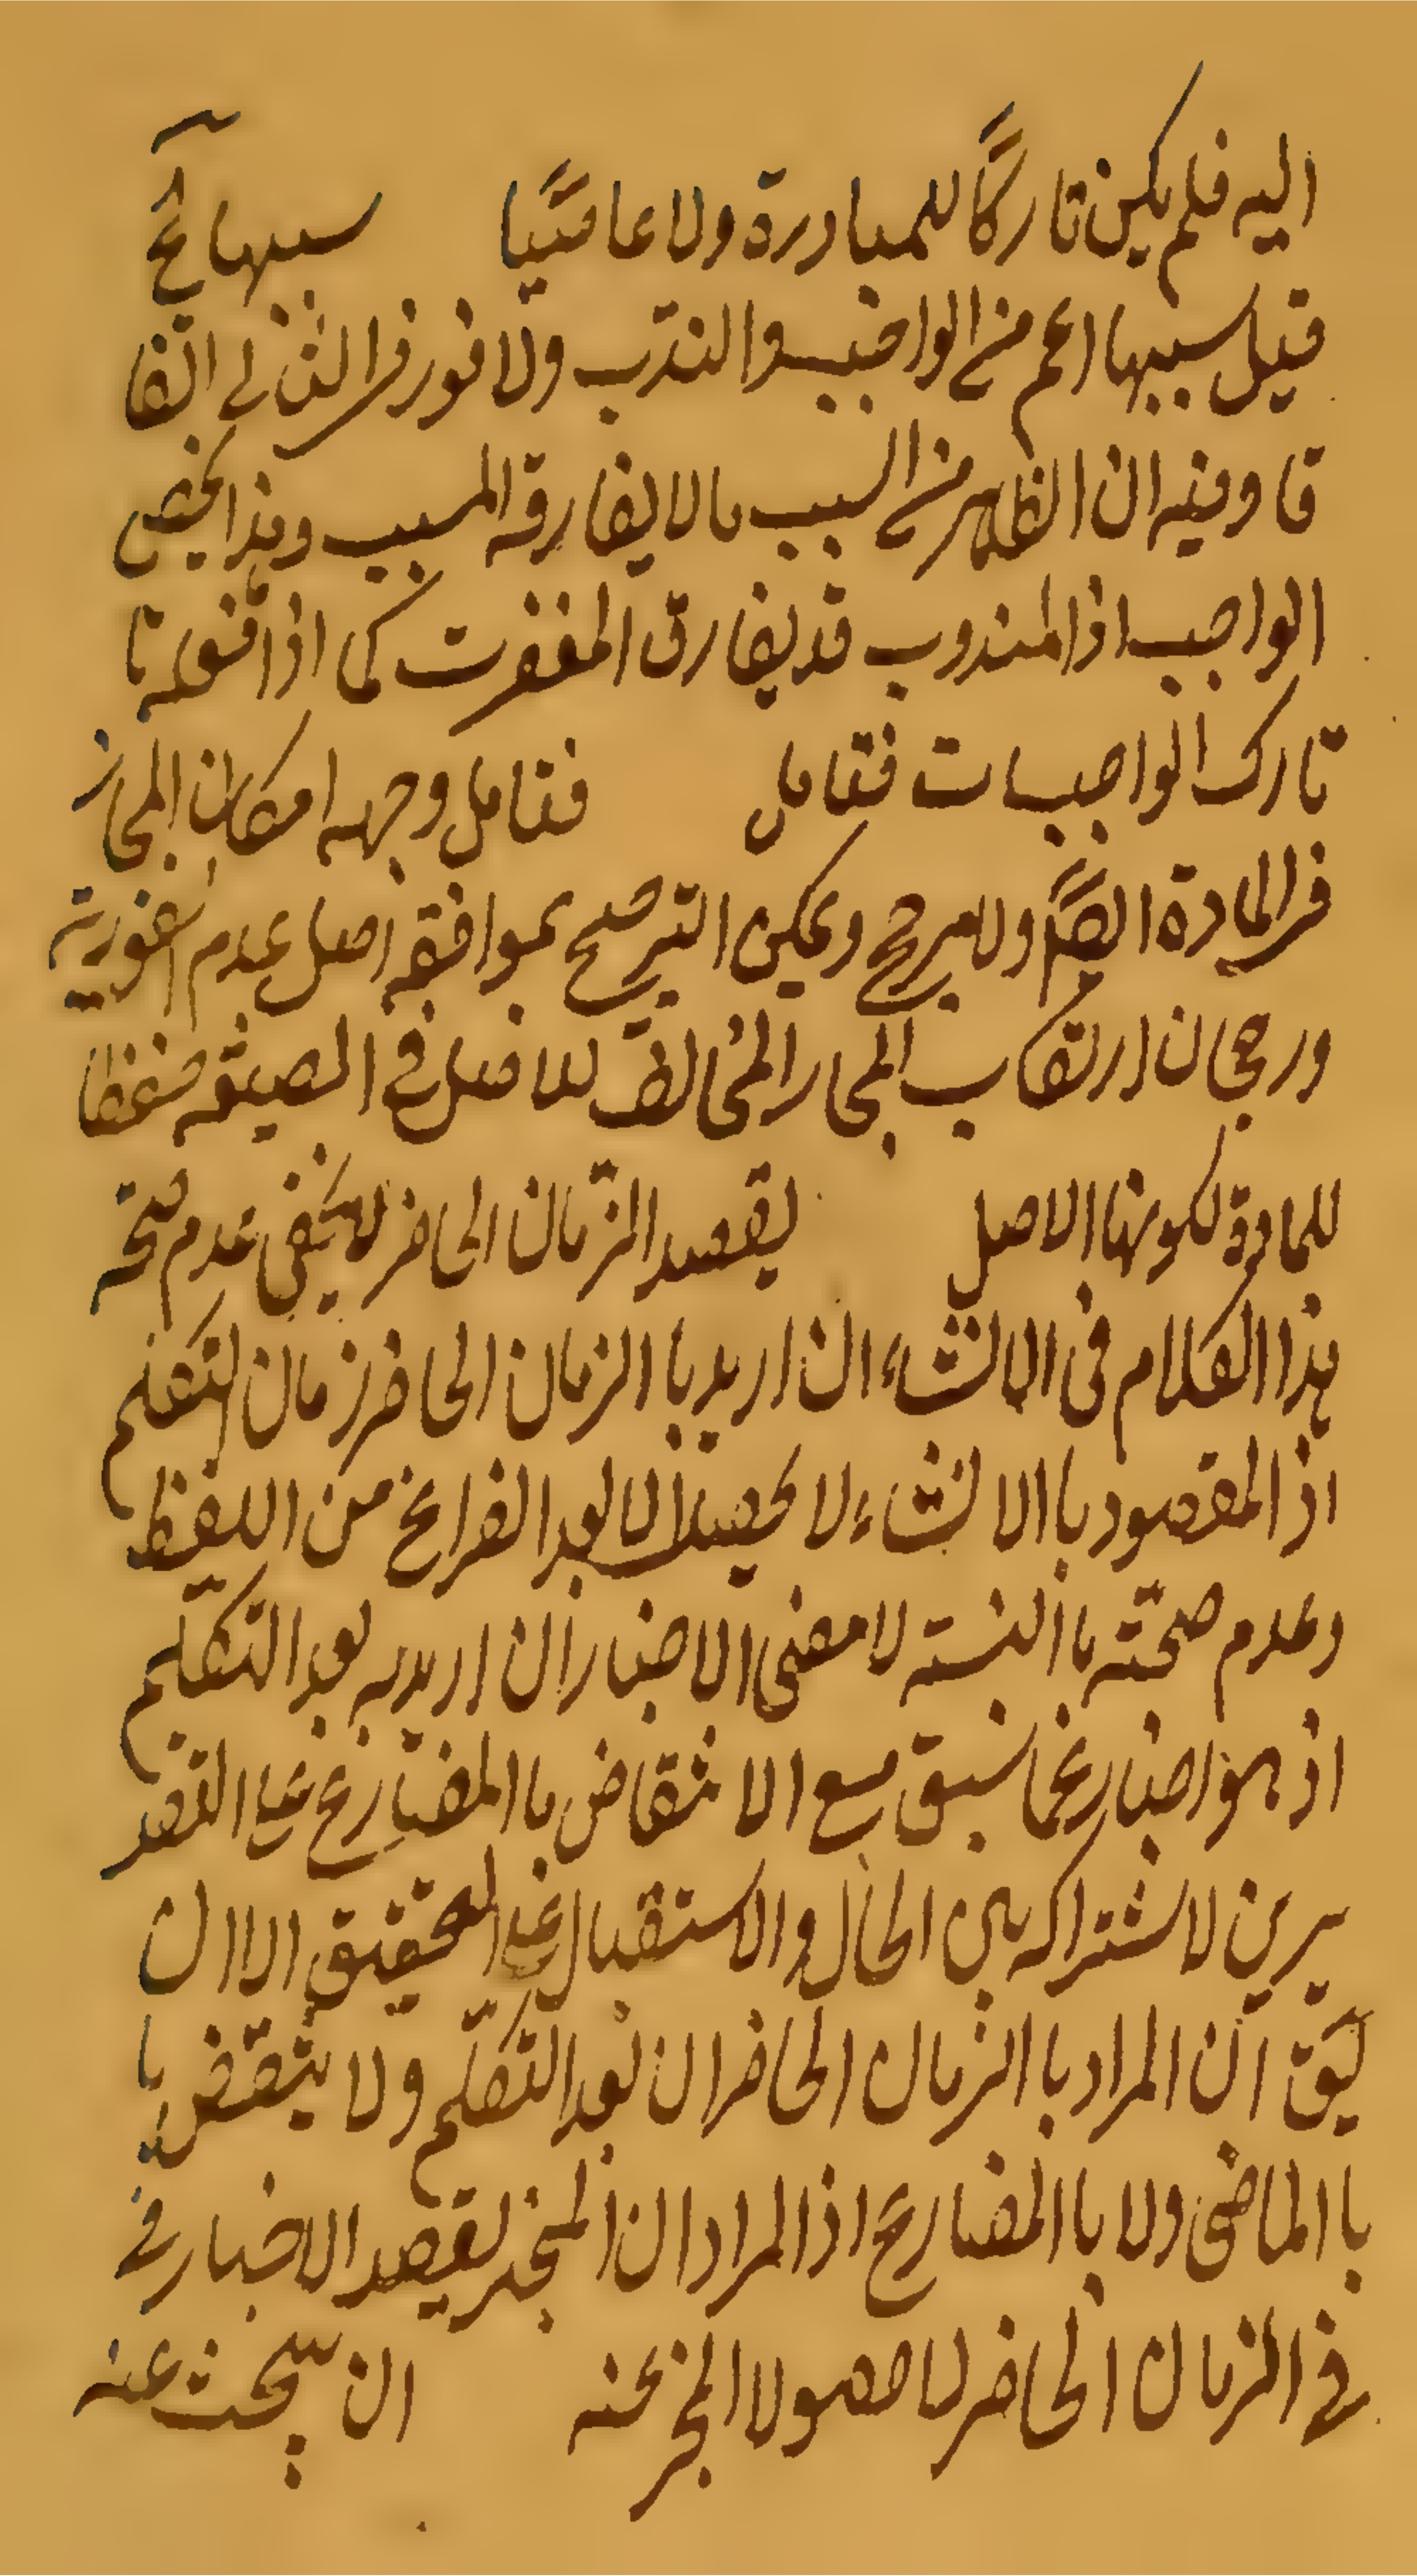 اليه فلم يكن تاركًا للمبادرة ولا عاصيًا سببها آه
قيل سببها اعم من الواجب والندب ولا فور في الثاني اتفا
قا وفيه ان الظاهر من السبب ما لا يفارقه المسبب وهذا يخص
الواجب اذ المندوب قد يفارق المغفرت كما اذا فعله تا
تارك الواجبات فتامل فتامل وجهه امكان المجاز
في المادة ايضًا ولا مرجح ويمكن الترجيح بموافقه اصل عدم الفورية
ورجحان ارتكاب المجاز المخالف للاصل في الصيغه حفظا
للمادة لكونها الاصل يقصد الزمان الحاضر لا يخفى عدم صحه
هذا الكلام في الانشاء ان اريد با الزمان الحاضر زمان التكلم
اذ المقصود با الانشاء لا يحصل الا بعد الفراغ من اللفظ
وعدم صحته با النسبته لا معنى الاخبار ان اريد به بعد التكلم
اذ هو اخبار عما سبق مع الانتقاض با المضارع على التقد
يرين لاشتراكه بين الحال والاستقبال على التحقيق الا ان
يق ان المراد با الزمان الحاضر ان بعد التكلم ولا ينتقض با
با الماضى ولا با المضارع اذ المراد ان المخبر يقصد الاخبار في
في الزمان الحاضر لا حصول المخبر عنه ان يبحث عنه